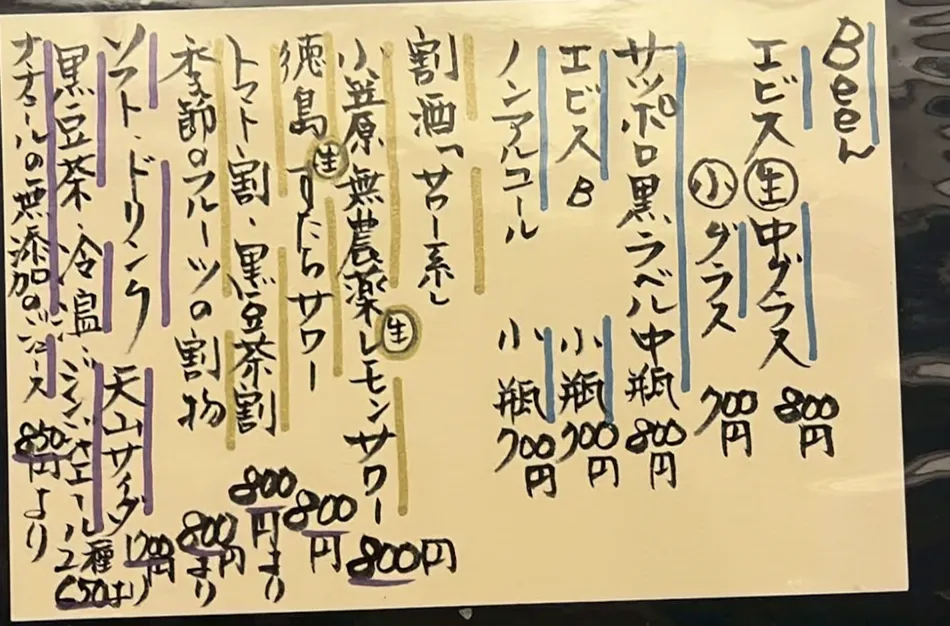 Beer
エビス生中グラス 800円
小グラス 700円
サッポロ黒ラベル中瓶 800円
エビスB 小瓶 700円
ノンアルコール 小瓶 700円
割酒「サワー系」
小笠原無農薬レモンサワー 生 800円
徳島生すだちサワー 800円
トマト割・黒豆茶割 800円より
季節のフルーツの割物 800円より
ソフト・ドリンク 天山サイダー
黒豆茶・冷温・ジンジャエール2種 650より
の無添加のジュース 850円より